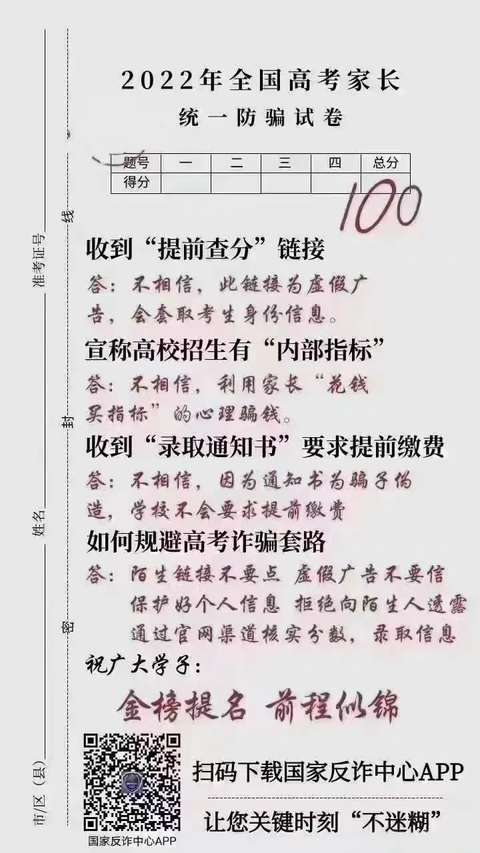 2022年全国高考家长
统一防骗试卷
题号 一 二 三 四 总分
得分
100
收到“提前查分”链接
答：不相信，此链接为虚假广
告，会套取考生身份信息。
宣称高校招生有“内部指标”
答：不相信，利用家长“花钱
买指标”的心理骗钱。
收到“录取通知书”要求提前缴费
答：不相信，因为通知书为骗子伪
造，学校不会要求提前缴费
如何规避高考诈骗套路
答：陌生链接不要点 虚假广告不要信
保护好个人信息 拒绝向陌生人透露
通过官网渠道核实分数，录取信息
祝广大学子：
金榜提名 前程似锦
扫码下载国家反诈中心APP
让您关键时刻“不迷糊”
国家反诈中心APP
市/区（县） 姓名 准考证号
密 封 线